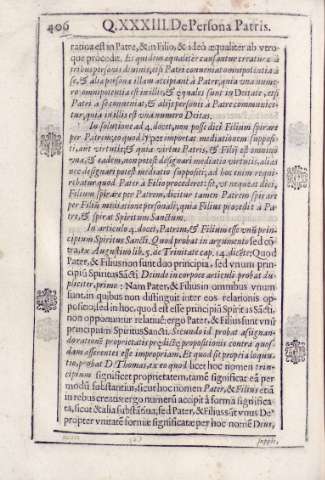 406 Q. XXXIII. De Persona Patris.
ratiua est in Patre, & in Filio, & ideò æqualiter ab vtro-
que procedit. Et quidem æqualitèr causantur creaturæ à
tribus personis diuinis, etsi Patri conueniat omnipotentia à
se, & aliæ personæ illam accipiant à Patre, quia vna nume-
ro omnipotentia est in illis, & æquales sunt in Deitate, etsi
Pater à se conueniat, & alijs personis à Patre communice-
tur, quia in illis est vna numero Deitas.
In solutione ad 4. docet, non posse dici Filium spirare
per Patrem, eo quod ly per importat mediationem suppositi,
aut virtutis; & quia virtus Patris, & Filij est omnino
vna, & eadem, non potest designari mediatio virtutis, alias
nec designari potest mediatio suppositi; ad hoc enim requi-
ribatur quod Pater à Filio procederet: sic, vt nequeat dici,
Filium spirare per Patrem, dicitur tamen Patrem spirare
per Filiũ mediatione personali, quia Filius procedit à Pa-
tre, & spirat Spiritum Sanctum.
In articulo 4. docet, Patrem, & Filium esse vnũ prin-
cipium Spiritus Sancti. Quod probat in argumento sed cõ-
tra, ex Augustino lib. 5. de Trinitate cap. 14. dicẽte: Quod
Pater, & Filius non sunt duo principia, sed vnum princi-
piũ Spiritus Sãcti. Deindè in corpore articuli probat du-
pliciter, primo: Nam Pater, & Filius in omnibus vnum
sunt, in quibus non distinguit inter eos relationis op-
positio; sed in hoc, quod est esse principiũ Spiritus Sãcti,
non opponuntur relatiuè: ergo Pater, & Filius sunt vnũ
principium Spiritus Sancti. Secundo id probat assignan-
do rationẽ proprietatis prædictæ propositionis contra quos-
dam asserentes esse impropriam. Et quod sit propria loquu-
tio, probat D. Thomas, ex eo quod licet hoc nomen prin-
cipium significet proprietatem, tamẽ significat eã per
modũ substantiui, sicut hoc nomen Pater, & Filius etiã
in rebus creatis: ergo numerũ accipit à forma significa-
ta, sicut & alia substãtiua, sed Pater, & Filius sũt vnus De°
propter vnitatẽ formæ significatæ per hoc nomẽ Deus,
suppli,